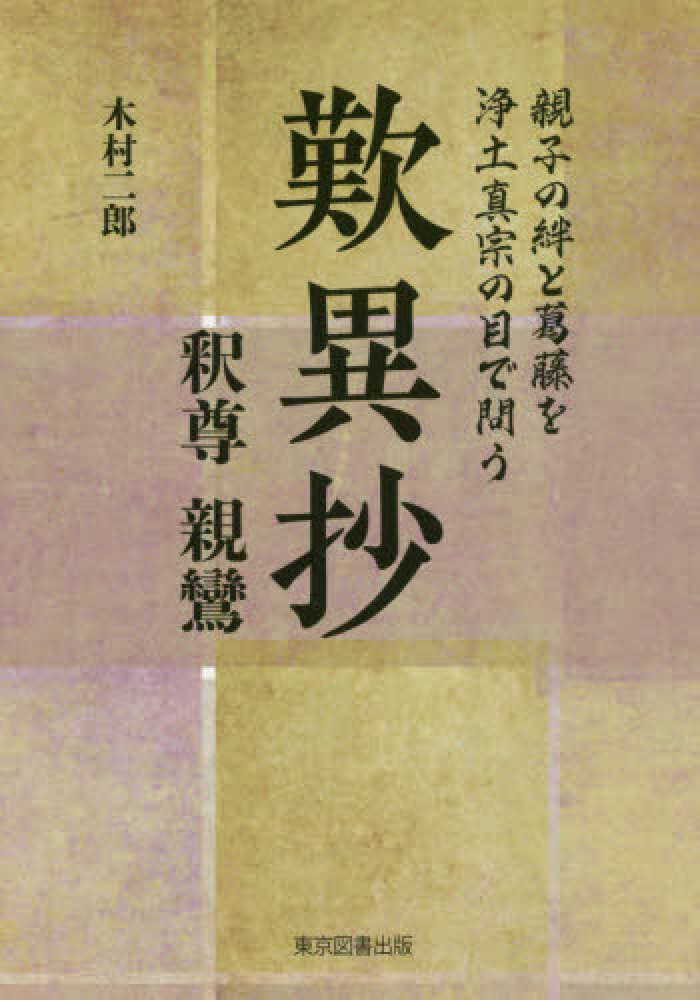 親子の絆と葛藤を
浄土真宗の目で問う
歎異抄
釈尊 親鸞
木村二郎
東京図書出版